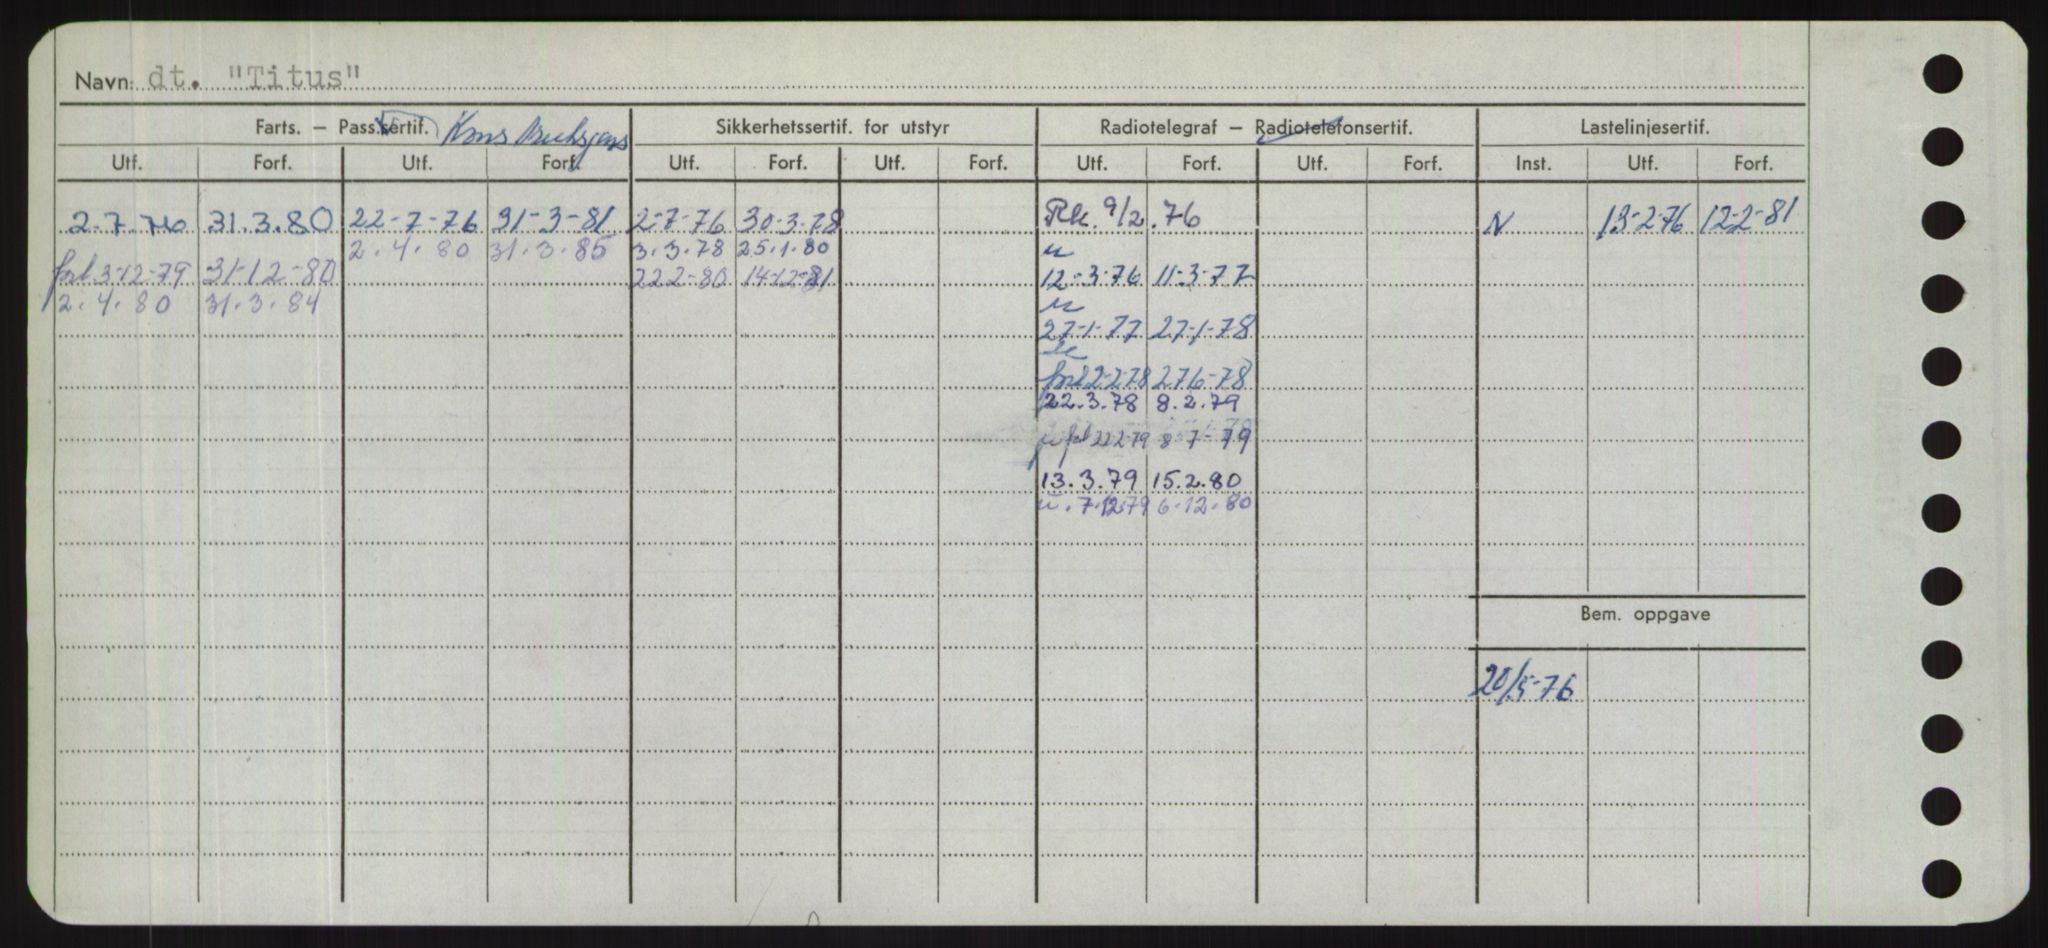 Navn: dt. "Titus"
Farts. – Pass.sertif. Kons Sikkerhetssertif. for utstyr Radiotelegraf – Radiotelefonsertif. Lastelinjesertif.
Utf. Forf. Utf. Forf. Utf. Forf. Utf. Forf. Utf. Forf. Utf. Forf. Inst. Utf. Forf.
2.7.76 31.3.80 22-7-76 31-3-81 2-7-76 30-3-78 Rk. 9/2.76 N 13-2-76 12-2-81
2.4.80 31.3.85 3.3.78 25.1.80 u
forl. 3-12-79 31-12-80 22.2-80 14-12-81 12-3-76 11-3-77
2.4.80 31.3.84 u
27-1-77 27-1-78
forl 22-2-78 27.6-78
22.3.78 8.2.79
u forl 22.2-79 8-7-79
13.3.79 15.2.80
u. 7.12.79 6.12.80
Bem. oppgave
20/5-76